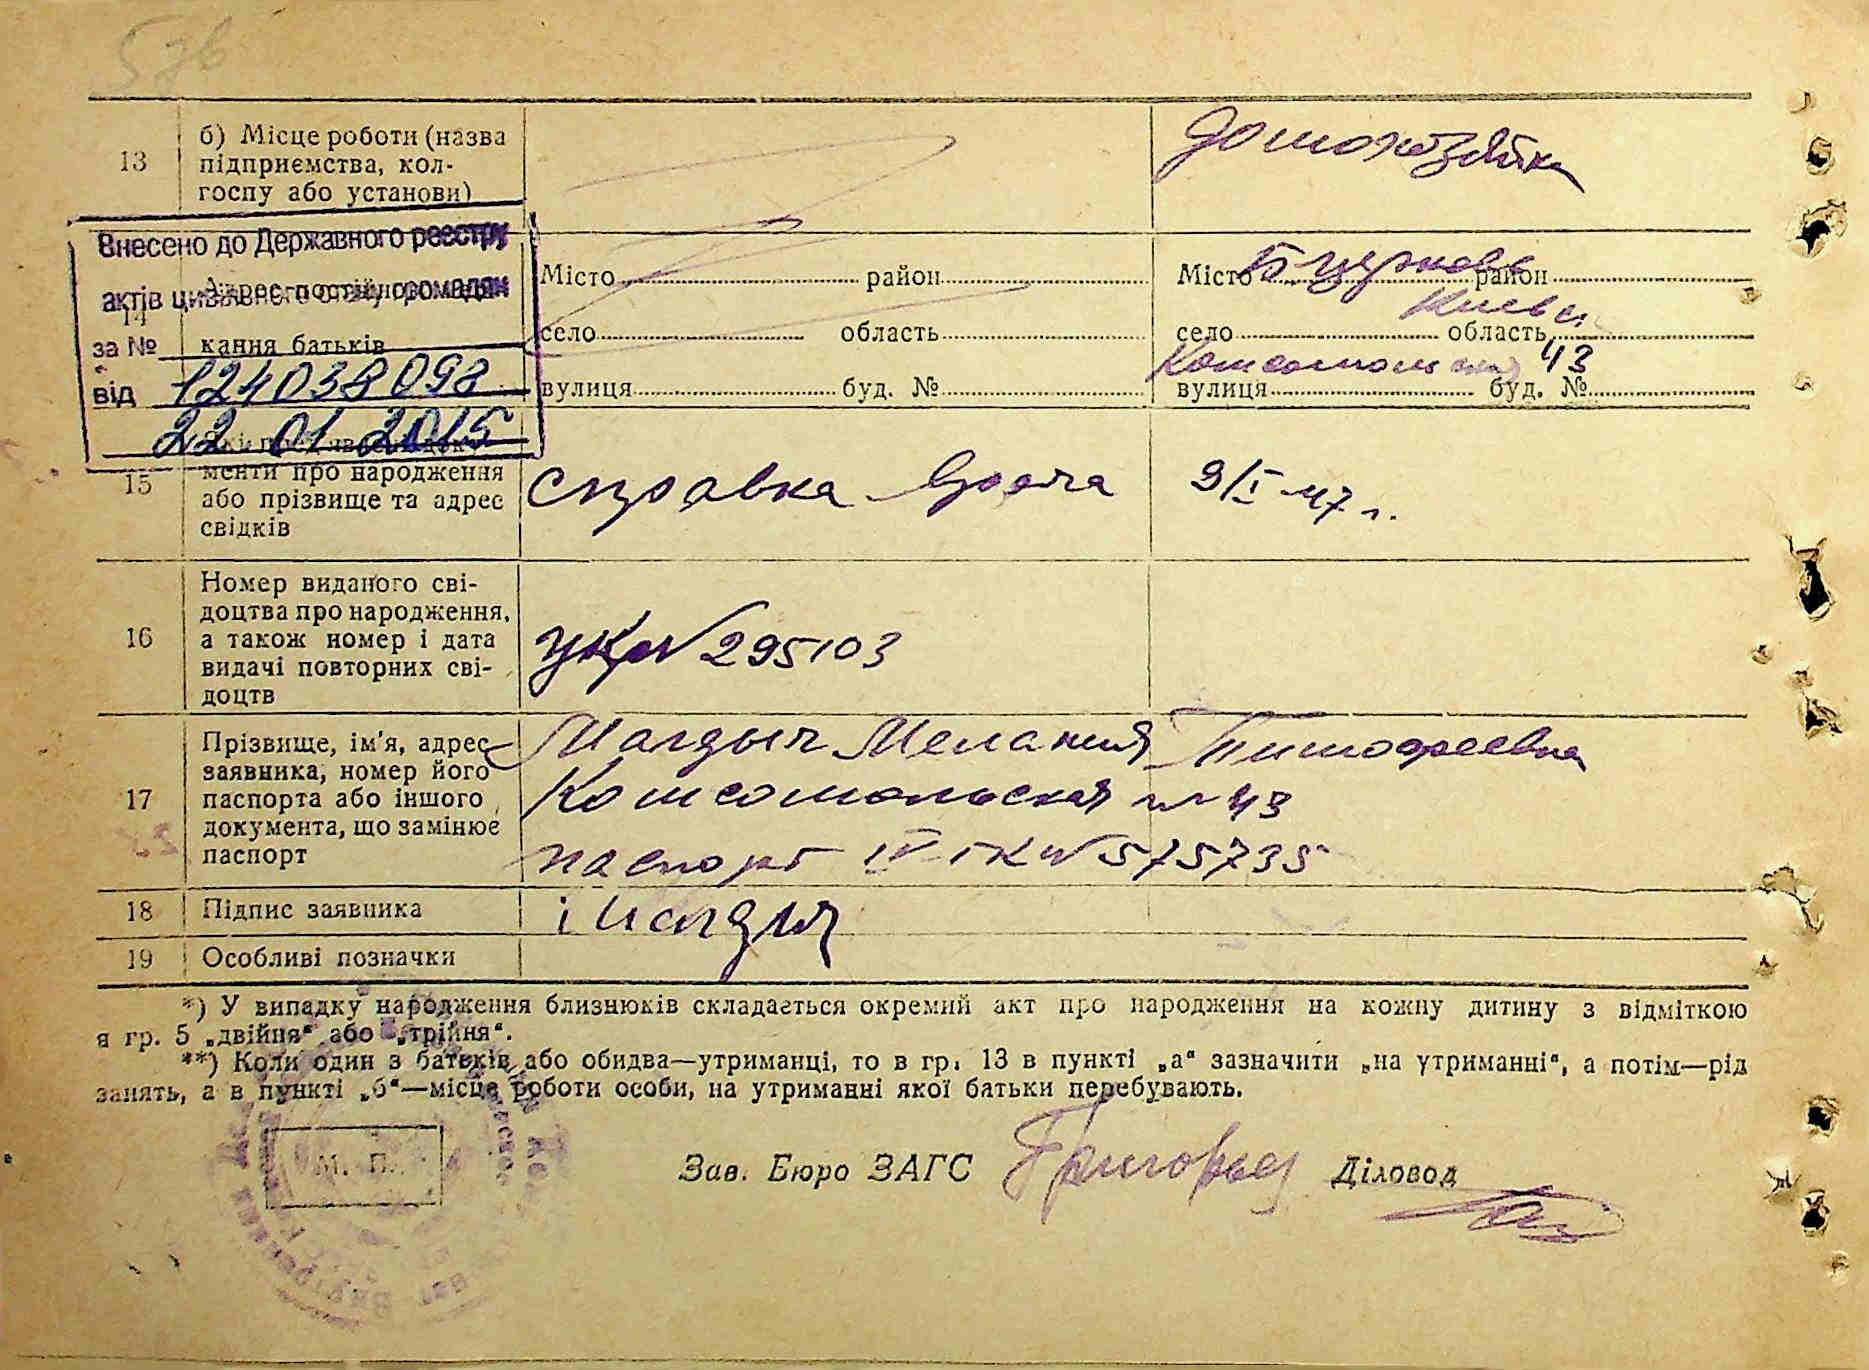 13
б) Місце роботи (назва
підприємства, кол-
госпу або установи)
Домохозяйка
Внесено до Державного реєстру
актів цивільного стану громадян
за №
від 124038098
22 01 2015
14
кання батьків
Місто район
село область
вулиця буд. №
Місто Б церковь район
Киевск
село область
Комсомольская 43
вулиця буд. №
15
менти про народження
або прізвище та адрес
свідків
справка врача 9/I-47 г.
16
Номер виданого сві-
доцтва про народження,
а також номер і дата
видачі повторних сві-
доцтв
N 295103
17
Прізвище, ім'я, адрес
заявника, номер його
паспорта або іншого
документа, що замінює
паспорт
Магдыч Мелания Тимофеевна
Комсомольская 43
паспорт IV-ГК N 575735
18
Підпис заявника
Магдич
19
Особливі позначки
*) У випадку народження близнюків складається окремий акт про народження на кожну дитину з відміткою
я гр. 5 „двійня“ або „трійня“.
**) Коли один з батьків або обидва—утриманці, то в гр. 13 в пункті „а“ зазначити „на утриманні“, а потім—рід
занять, а в пункті „б“—місце роботи особи, на утриманні якої батьки перебувають.
М. П.
Зав. Бюро ЗАГС Діловод